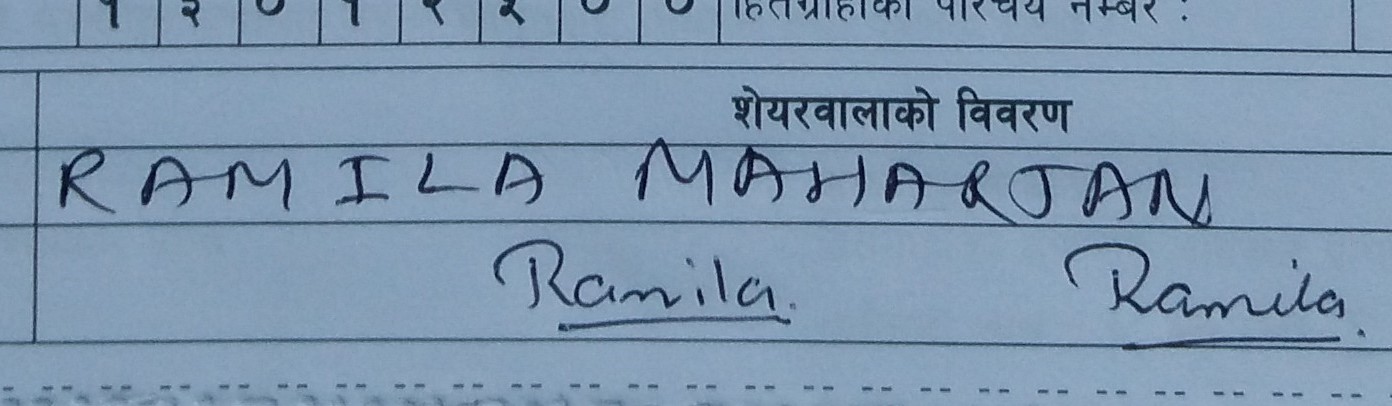 हितग्राहीको परिचय नम्बर :
शेयरवालाको विवरण
RAMILA MAHARJAN
Ramila. Ramila.